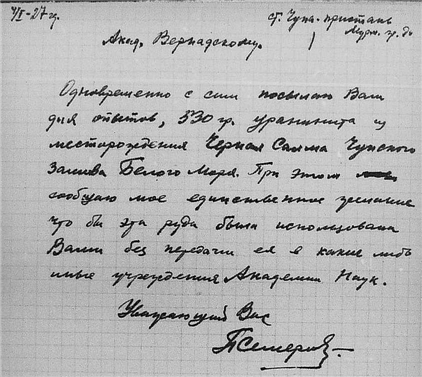 4/I-27 г. ст. Чупа-пристань
Мурм. ж. д.
Акад. Вернадскому.
Одновременно с сим посылаю Вам
для опытов, 530 гр. уранинита из
месторождения Черная Салма Чупского
залива Белого Моря. При этом
сообщаю мое единственное условие
что бы эта руда была использована
Вами без передачи ея в какие либо
иные учреждения Академии Наук.
Уважающий Вас